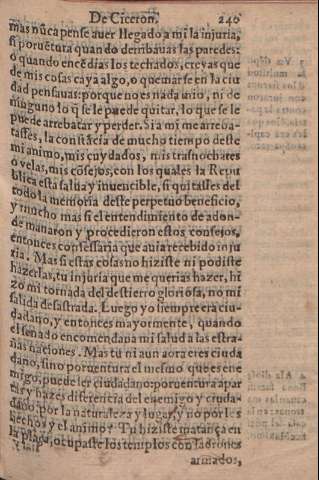 De Ciceron. 240
mas nũca pense auer llegado a mi la injuria,
si poruẽtura quando derribauas las paredes:
o quando encẽdias los techados, creyas que
de mis cosas caya algo, o quemarse en la ciu
dad pensauas: porque no es nada mio, ni de
ninguno lo q̃ se le puede quitar, lo que se le
puede arrebatar y perder. Si a mi me arreba-
tasses, la constãcia de mucho tiempo deste
mi animo, mis cuydados, mis trasnochares
o velas, mis cõsejos, con los quales la Repu
blica esta salua y inuencible, si quitasses del
todo la memoria deste perpetuo beneficio,
y mucho mas si el entendimiento de adon-
de manaron y procedieron estos consejos,
entonces confessaria que auia recebido inju
ria. Mas si estas cosas no hiziste ni podiste
hazerlas, tu injuria que me querias hazer, hi
zo mi tornada del destierro gloriosa, no mi
salida desastrada. Luego yo siempre era ciu-
dadano, y entonces mayormente, quando
el senado encomendaua mi salud a las estra-
ñas naciones. Mas tu ni aun aora eres ciuda
dano, sino poruentura el mesmo que es ene
migo, puede ser ciudadano: poruentura apar
tas y hazes diferencia del enemigo y ciuda-
dano por la naturaleza y lugar, y no por los
hechos y el animo? Tu hiziste matança en
la plaça, ocupaste los templos con ladrones
armados,